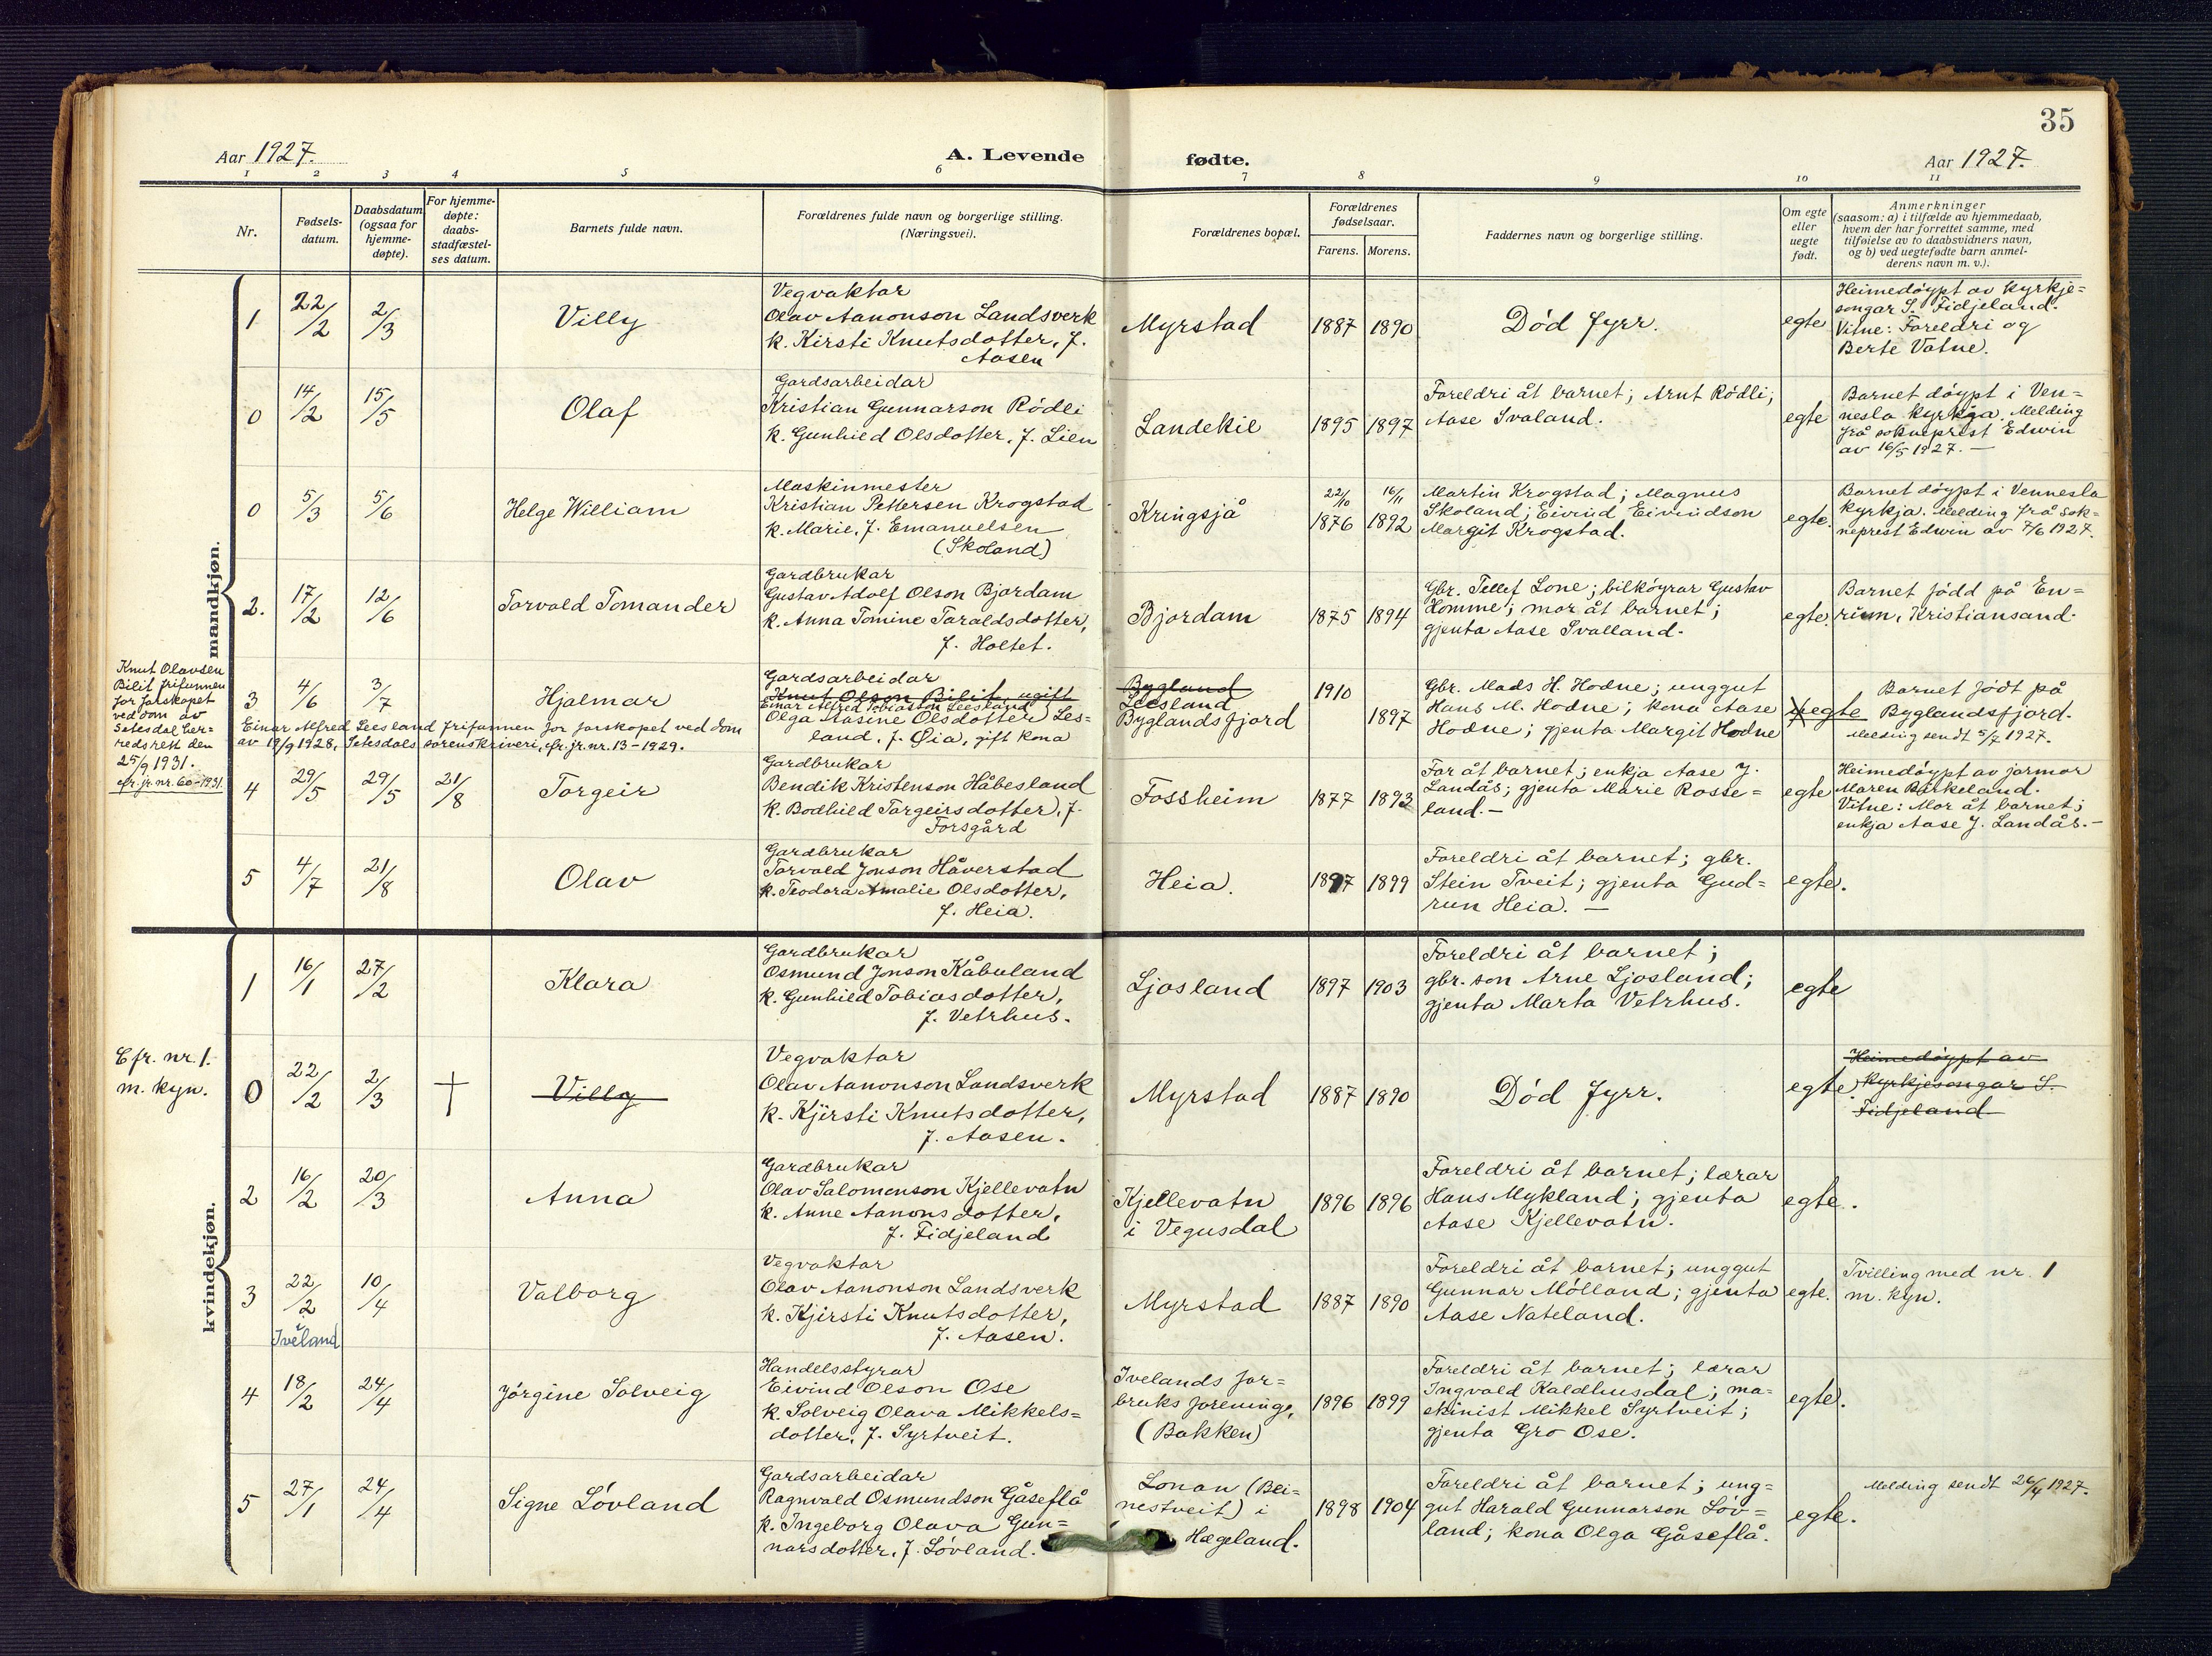 35
Aar 1927.
A. Levende
fødte.
Aar 1927.
1 2 3 4 5 6 7 8 9 10 11
Nr.
Fødsels-
datum.
Daabsdatum
(ogsaa for
hjemme-
døpte).
For hjemme-
døpte:
daabs-
stadfæstel-
ses datum.
Barnets fulde navn.
Forældrenes fulde navn og borgerlige stilling.
(Næringsvei).
Forældrenes bopæl.
Forældrenes
fødselsaar.
Farens. Morens.
Faddernes navn og borgerlige stilling.
Om egte
eller
uegte
født.
Anmerkninger
(saasom: a) i tilfælde av hjemmedaab,
hvem der har forrettet samme, med
tilføielse av to daabsvidners navn,
og b) ved uegtefødte barn anmel-
derens navn m. v.).
mandkjøn.
1 22/2 2/3 Villy
Vegvaktar
Olav Aanonson Landsverk
k. Kirsti Knutsdotter, f.
Aasen
Myrstad 1887 1890 Död fyrr. egte
Heimedöypt av kyrkje=
songar S. Fidjeland.
Vitne: Foreldri og
Berte Vatne.
0 14/2 15/5 Olaf
Gardsarbeidar
Kristian Gunnarson Rödli
k. Gunhild Olsdotter, f. Lien
Landekil 1895 1897
Foreldri åt barnet; Arnt Rödli;
Aase Ivaland.
egte
Barnet döypt i Ven=
nesla kyrkja. Melding
frå sokneprest Edwin
av 16/5 1927. —
0 5/3 5/6 Helge William
Maskinmester
Kristian Pettersen Krogstad
k. Marie, f. Emanuelsen
(Skoland)
Kringsjå 22/10 1876 16/11 1892
Martin Krogstad; Magnus
Skoland; Eivind Eivindson
Margit Krogstad.
egte.
Barnet döypt i Vennesla
kyrkja. Melding frå sok=
neprest Edwin av 7/6 1927.
2. 17/2 12/6 Torvald Tomander
Gardbrukar
Gustav Adolf Olson Bjordam
k. Anna Tomine Taraldsdotter,
f. Holtet.
Bjordam 1875 1894
Gbr. Tellef Lone; bilköyrar Gustav
Homme; mor åt barnet;
gjenta Aase Svalland.
egte.
Barnet född på En=
rum, Kristiansand.
Knut Olavsen
Bilit frifunnen
for farskapet
ved dom av
Setesdal her-
redsrett den
25/9 1931.
cfr. jr. nr. 60-1931.
3 4/6 3/7 Hjalmar
Gardsarbeidar
Knut Olson Bilit, ugift
Einar Alfred Tobiasson Leesland
Olga Rasine Olsdotter Les=
land, f. Øia, gift kona
Bygland
Leesland
Byglandsfjord
1910 1897
Gbr. Mads H. Hodne; unggut
Hans M. Hodne; kona Aase
Hodne; gjenta Margit Hodne
uegte
Barnet födt på
Byglandsfjord.
Melding sendt 5/7 1927.
Einar Alfred Leesland frifunnen for farskapet ved dom
av 19/9 1928, Setesdals sorenskriveri, cfr. jr. nr. 13-1929.
4 29/5 29/5 21/8 Torgeir
Gardbrukar
Bendik Kristenson Håbesland
k. Bodhild Torgeirsdotter, f.
Forsgård
Fossheim 1877 1893
Far åt barnet; enkja Aase J.
Landås; gjenta Marie Rosse=
land. —
egte
Heimedöypt av jormor
Maren Birkeland.
Vitne: Mor åt barnet;
enkja Aase J. Landås. —
5 4/7 21/8 Olav
Gardbrukar
Torvald Jonson Håverstad
k. Teodora Amalie Olsdotter,
f. Heia.
Heia. 1897 1899
Foreldri åt barnet; gbr.
Stein Tveit; gjenta Gud=
run Heia. —
egte.
kvindekjøn.
1 16/1 27/2 Klara
Gardbrukar
Osmund Jonson Kåbuland
k. Gunhild Tobiasdotter,
f. Vetrhus.
Ljosland 1897 1903
Foreldri åt barnet;
gbr. son Arne Ljosland;
gjenta Marta Vetrhus.
egte
Cfr. nr. 1.
m. kyn.
0 22/2 2/3 † Villy
Vegvaktar
Olav Aanonson Landsverk
k. Kjirsti Knutsdotter,
f. Aasen.
Myrstad 1887 1890 Död fyrr. egte
Heimedöypt av
kyrkjesongar S.
Fidjeland
2 16/2 20/3 Anna
Gardbrukar
Olav Salomonson Kjellevatn
k. Anne Aanonsdotter,
f. Fidjeland
Kjellevatn
i Vegusdal
1896 1896
Foreldri åt barnet; lærar
Hans Mykland; gjenta
Aase Kjellevatn.
egte.
3 22/2 10/4 Valborg
Iveland
Vegvaktar
Olav Aanonson Landsverk
k. Kjirsti Knutsdotter,
f. Aasen.
Myrstad 1887 1890
Foreldri åt barnet; unggut
Gunnar Mölland; gjenta
Aase Nateland.
egte.
Tvilling med nr. 1
m. kyn.
4 18/2 24/4 Jörgine Solveig
Handelsstyrar
Eivind Olson Ose
k. Solveig Olava Mikkels=
dotter, f. Syrtveit.
Ivelands for=
bruksforening,
(Bakken)
1896 1899
Foreldri åt barnet; lærar
Ingvald Kaldhusdal; ma=
skinist Mikkel Syrtveit;
gjenta Gro Ose.
egte.
5 27/1 24/4 Signe Lövland
Gardsarbeidar
Ragnvald Osmundson Gåseflå
k. Ingeborg Olava Gun=
narsdotter, f. Lövland.
Lonan (Bei=
nestveit) i
Hægeland.
1898 1904
Foreldri åt barnet; ung=
gut Harald Gunnarson Löv=
land; kona Olga Gåseflå.
egte.
Melding sendt 26/4 1927.